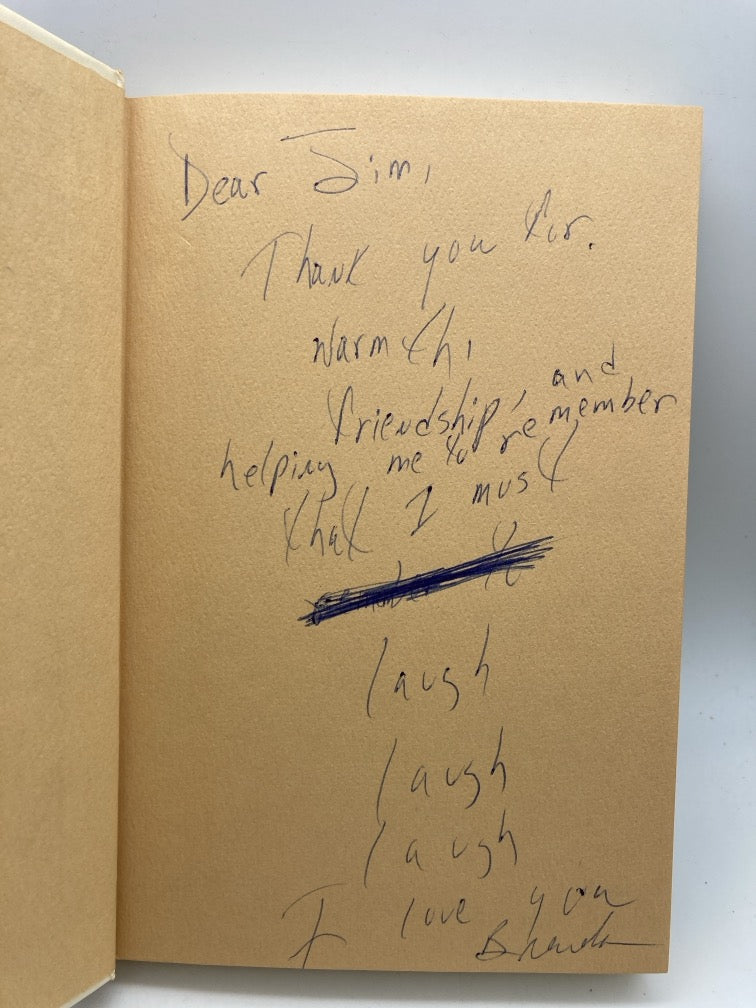 Dear Jim,
Thank you for.
warmth,
friendship, and
helping me to remember
that I must
remember to
laugh
laugh
laugh
I love you